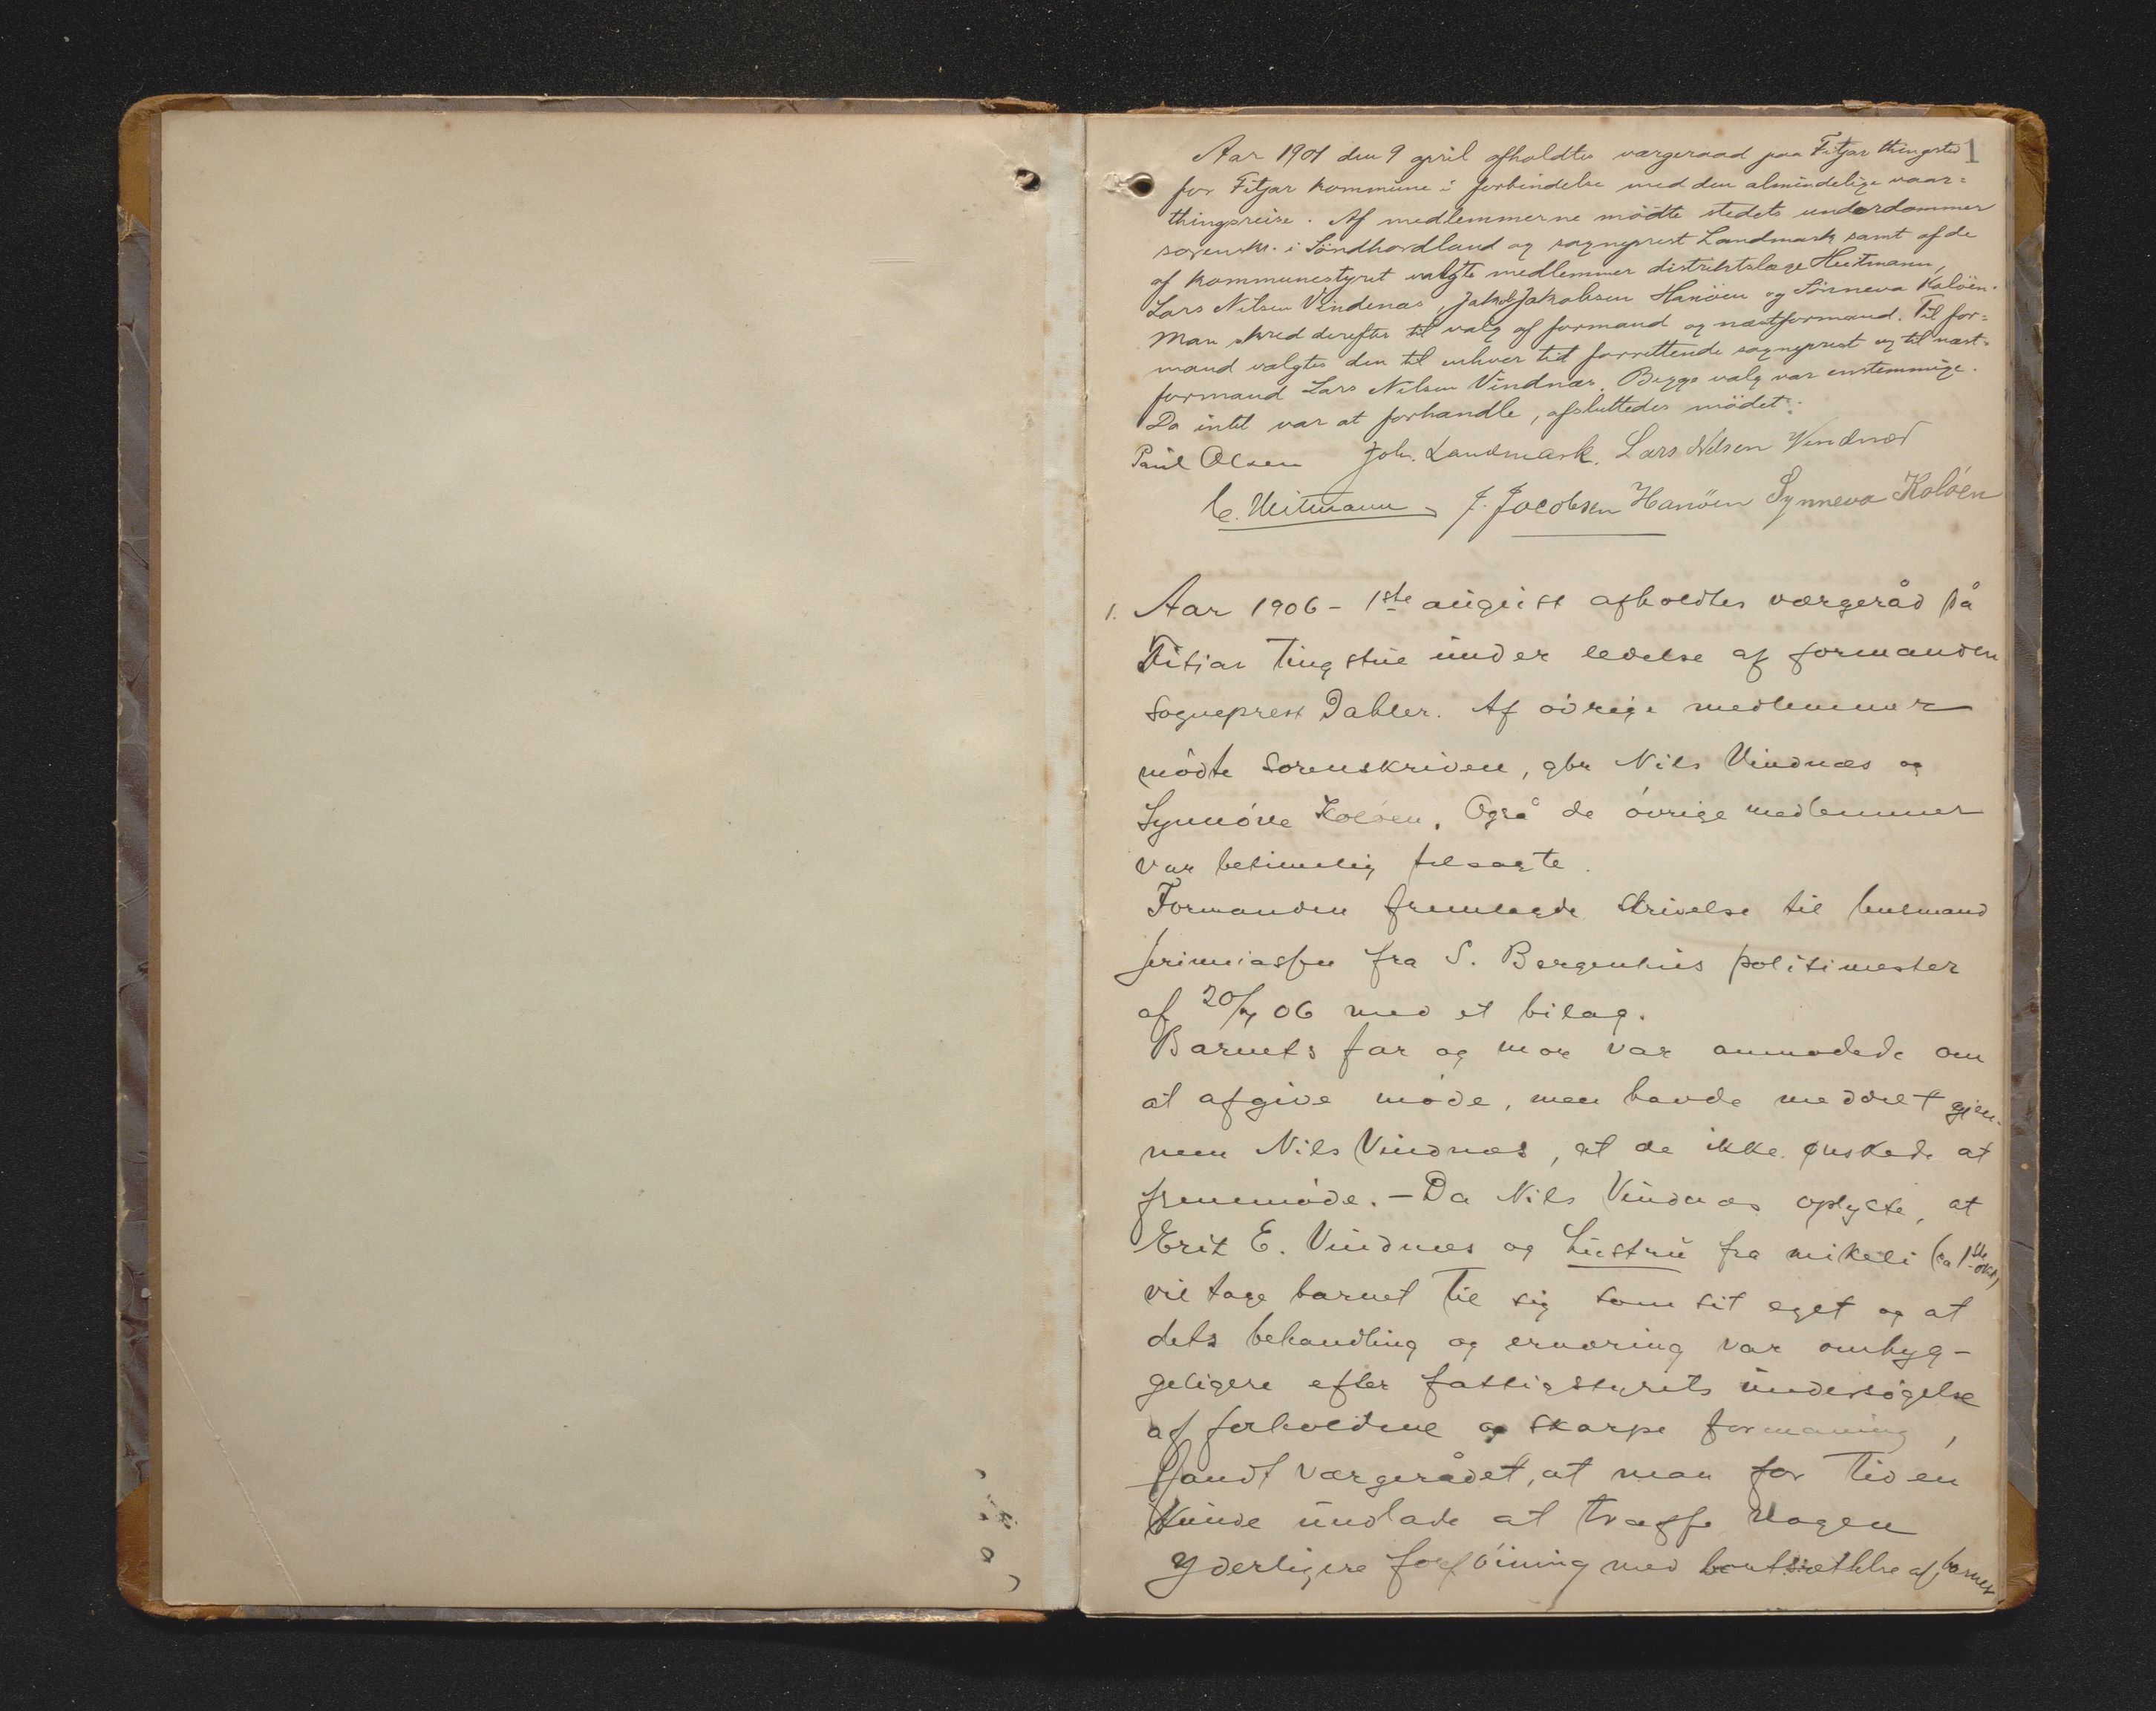 1
Aar 1901 den 9 april afholdtes værgeraad paa Fitjar thingsted
for Fitjar kommune i forbindelse med den almindelige vaar=
thingsreise. Af medlemmerne mödte stedets underdommer
sorenskr. i Söndhordland og sogneprest Landmark samt af de
af kommunestyret valgte medlemmer distriktslæge Heitmann,
Lars Nilsen Vindenæs, Jakob Jakobsen Hanöen og Sönneva Kolöen.
Man skred derefter til valg af formand og næstformand. Til for=
mand valgtes den til enhver tid forrettende sogneprest og til næst=
formand Lars Nilsen Vindnæs. Begge valg var enstemmige.
Da intet var at forhandle, afsluttedes mödet.
Paul Olsen Joh. Landmark. Lars Nilsen Vindnæs
C. Heitmann J. Jacobsen Hanöen Synneva Kolóen
1. Aar 1906 - 1ste august afholdtes værgeråd på
Fitjar Tingstue under ledelse af formanden
Sogneprest Dahler. Af óvrige medlemmer
mödte Sorenskriveren, gbr Nils Vindnæs og
Synnóve Kolóen. Også de óvrige medlemmer
var betimelig tilsagte.
Formanden fremlagde skrivelse til lensmand
Jerimiassen fra S. Bergenhus politimester
af 20/7 06 med et bilag.
Barnets far og mor var anmodede om
at afgive móde, men havde meddelt gjen-
nem Nils Vindnæs, at de ikke ønskede at
fremmóde. - Da Nils Vindnæs oplyste, at
Erik E. Vindnæs og hustru fra mikeli (ca 1ste okt)
vil tage barnet til sig som sit eget og at
dets behandling og ernæring var omhyg-
geligere efter fattigstyrets undersógelse
af forholdene og skarpe formaning,
fandt værgerådet, at man for tiden
kunde undlade at træffe nogen
yderligere forfóining med bortsættelse af barnet